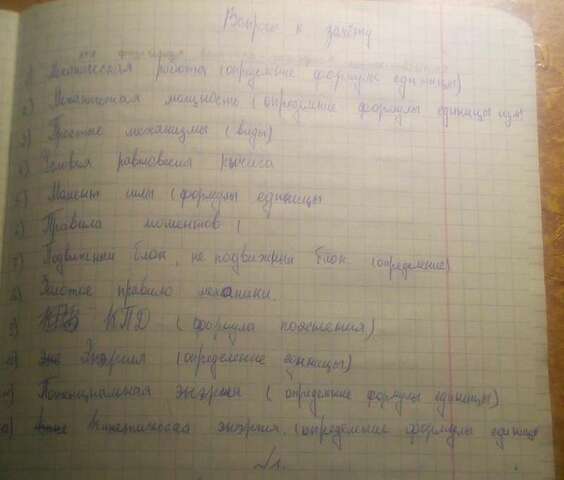 Вопросы к зачёту
1) Механическая работа (определние формулы единицы)
2) Механическая мощность (определние формулы единицы изм
3) Простые механизмы (виды)
4) Условия равновесия рычага
5) Момент силы (формулы единицы
6) Правила моментов (
7) Подвижный блок, не подвижный блок (определение)
8) Золотое правило механики.
9) КПД (формула пояснения)
10) Энэргия (определение единицы)
11) Потенциральная энэргия (определние формулы единицы)
12) Кинетическая энэргия. (определние формулы единицы
√1.